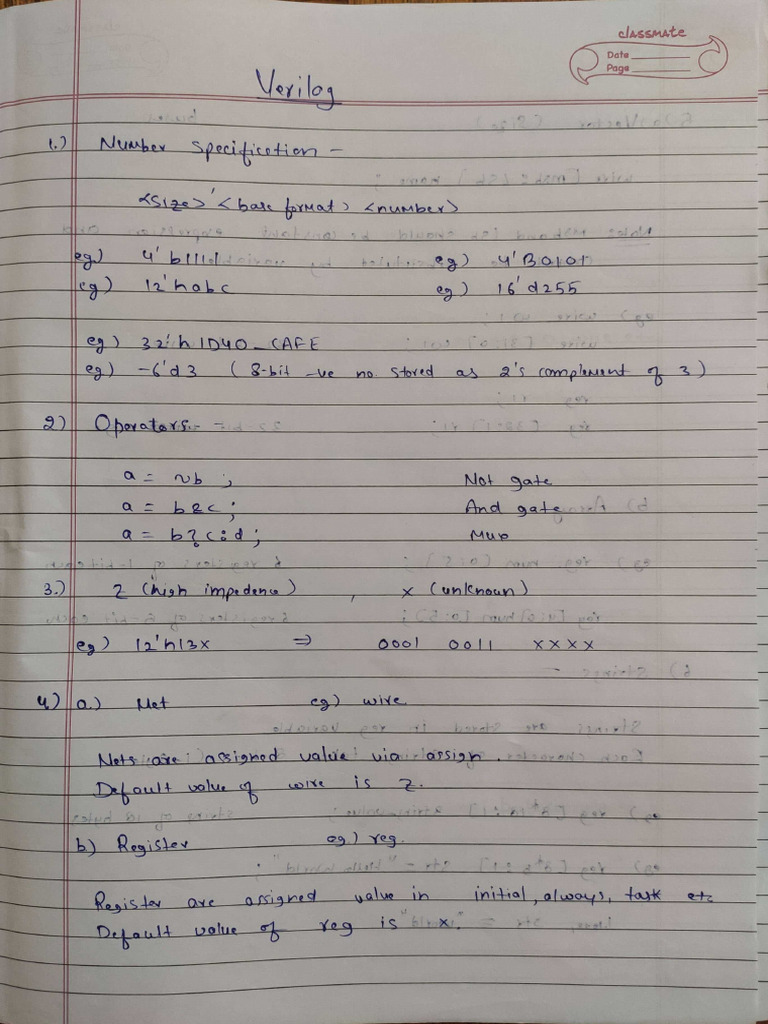 classmate
Date
Page
Verilog
1.) Number Specification -
<size>' <base format> <number>
eg.) 4' b1111 eg.) 4'B0101
eg) 12'habc eg) 16'd255
eg) 32'h 1D40_CAFE
eg) -6'd3 (8-bit -ve no. stored as 2's complement of 3)
2) Operators:-
a = ~b ; Not gate
a = b&c ; And gate
a = b?c:d ; Mux
3.) Z (high impedence) , x (unknown)
eg) 12'h13x ⇒ 0001 0011 xxxx
4) a.) Net eg) wire.
Nets are assigned value via assign.
Default value of wire is z.
b) Register eg) reg.
Register are assigned value in initial, always, task etc
Default value of reg is x.